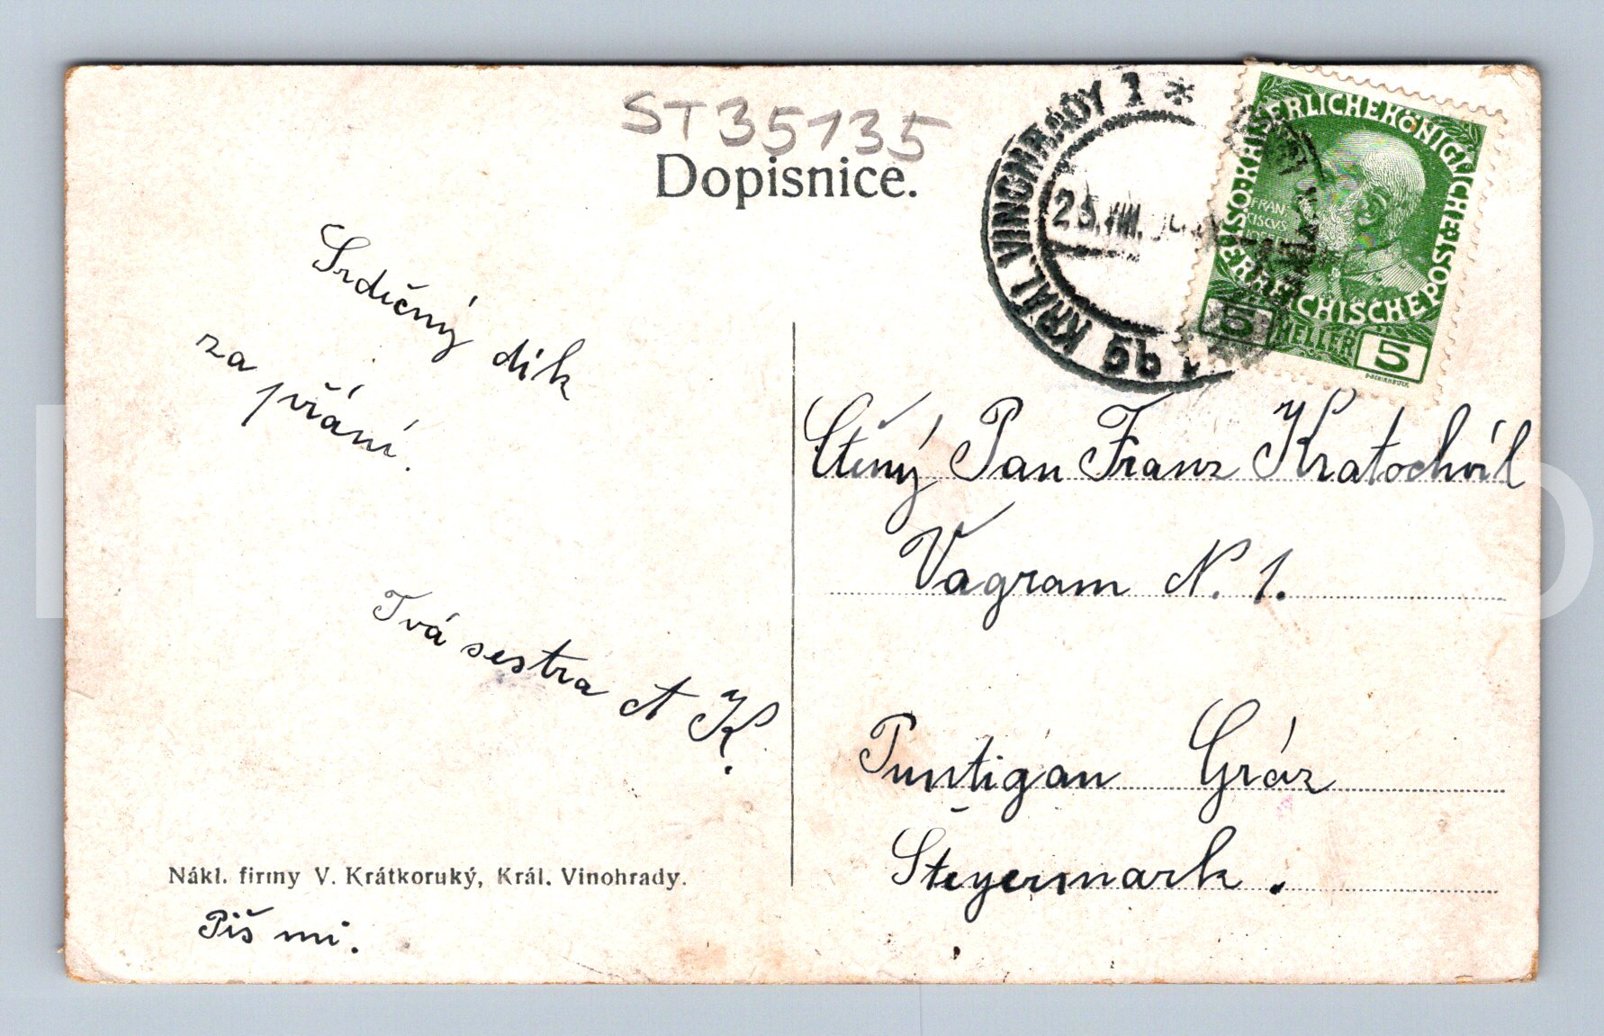 ST35135
Dopisnice.
KRÁL. VINOHRADY 1 *
25.VIII.
KAISERLICHE KÖNIGLICHE POST
ÖSTERREICHISCHE
FRAN-
CISCVS
5 HELLER 5
Srdečný dík
za přání.
Tvá sestra A K.
Ctěný Pan Franz Kratochvíl
Vagram N. 1.
Puntigan Gráz
Steyermark.
Nákl. firmy V. Krátkoruký, Král. Vinohrady.
Piš mi.